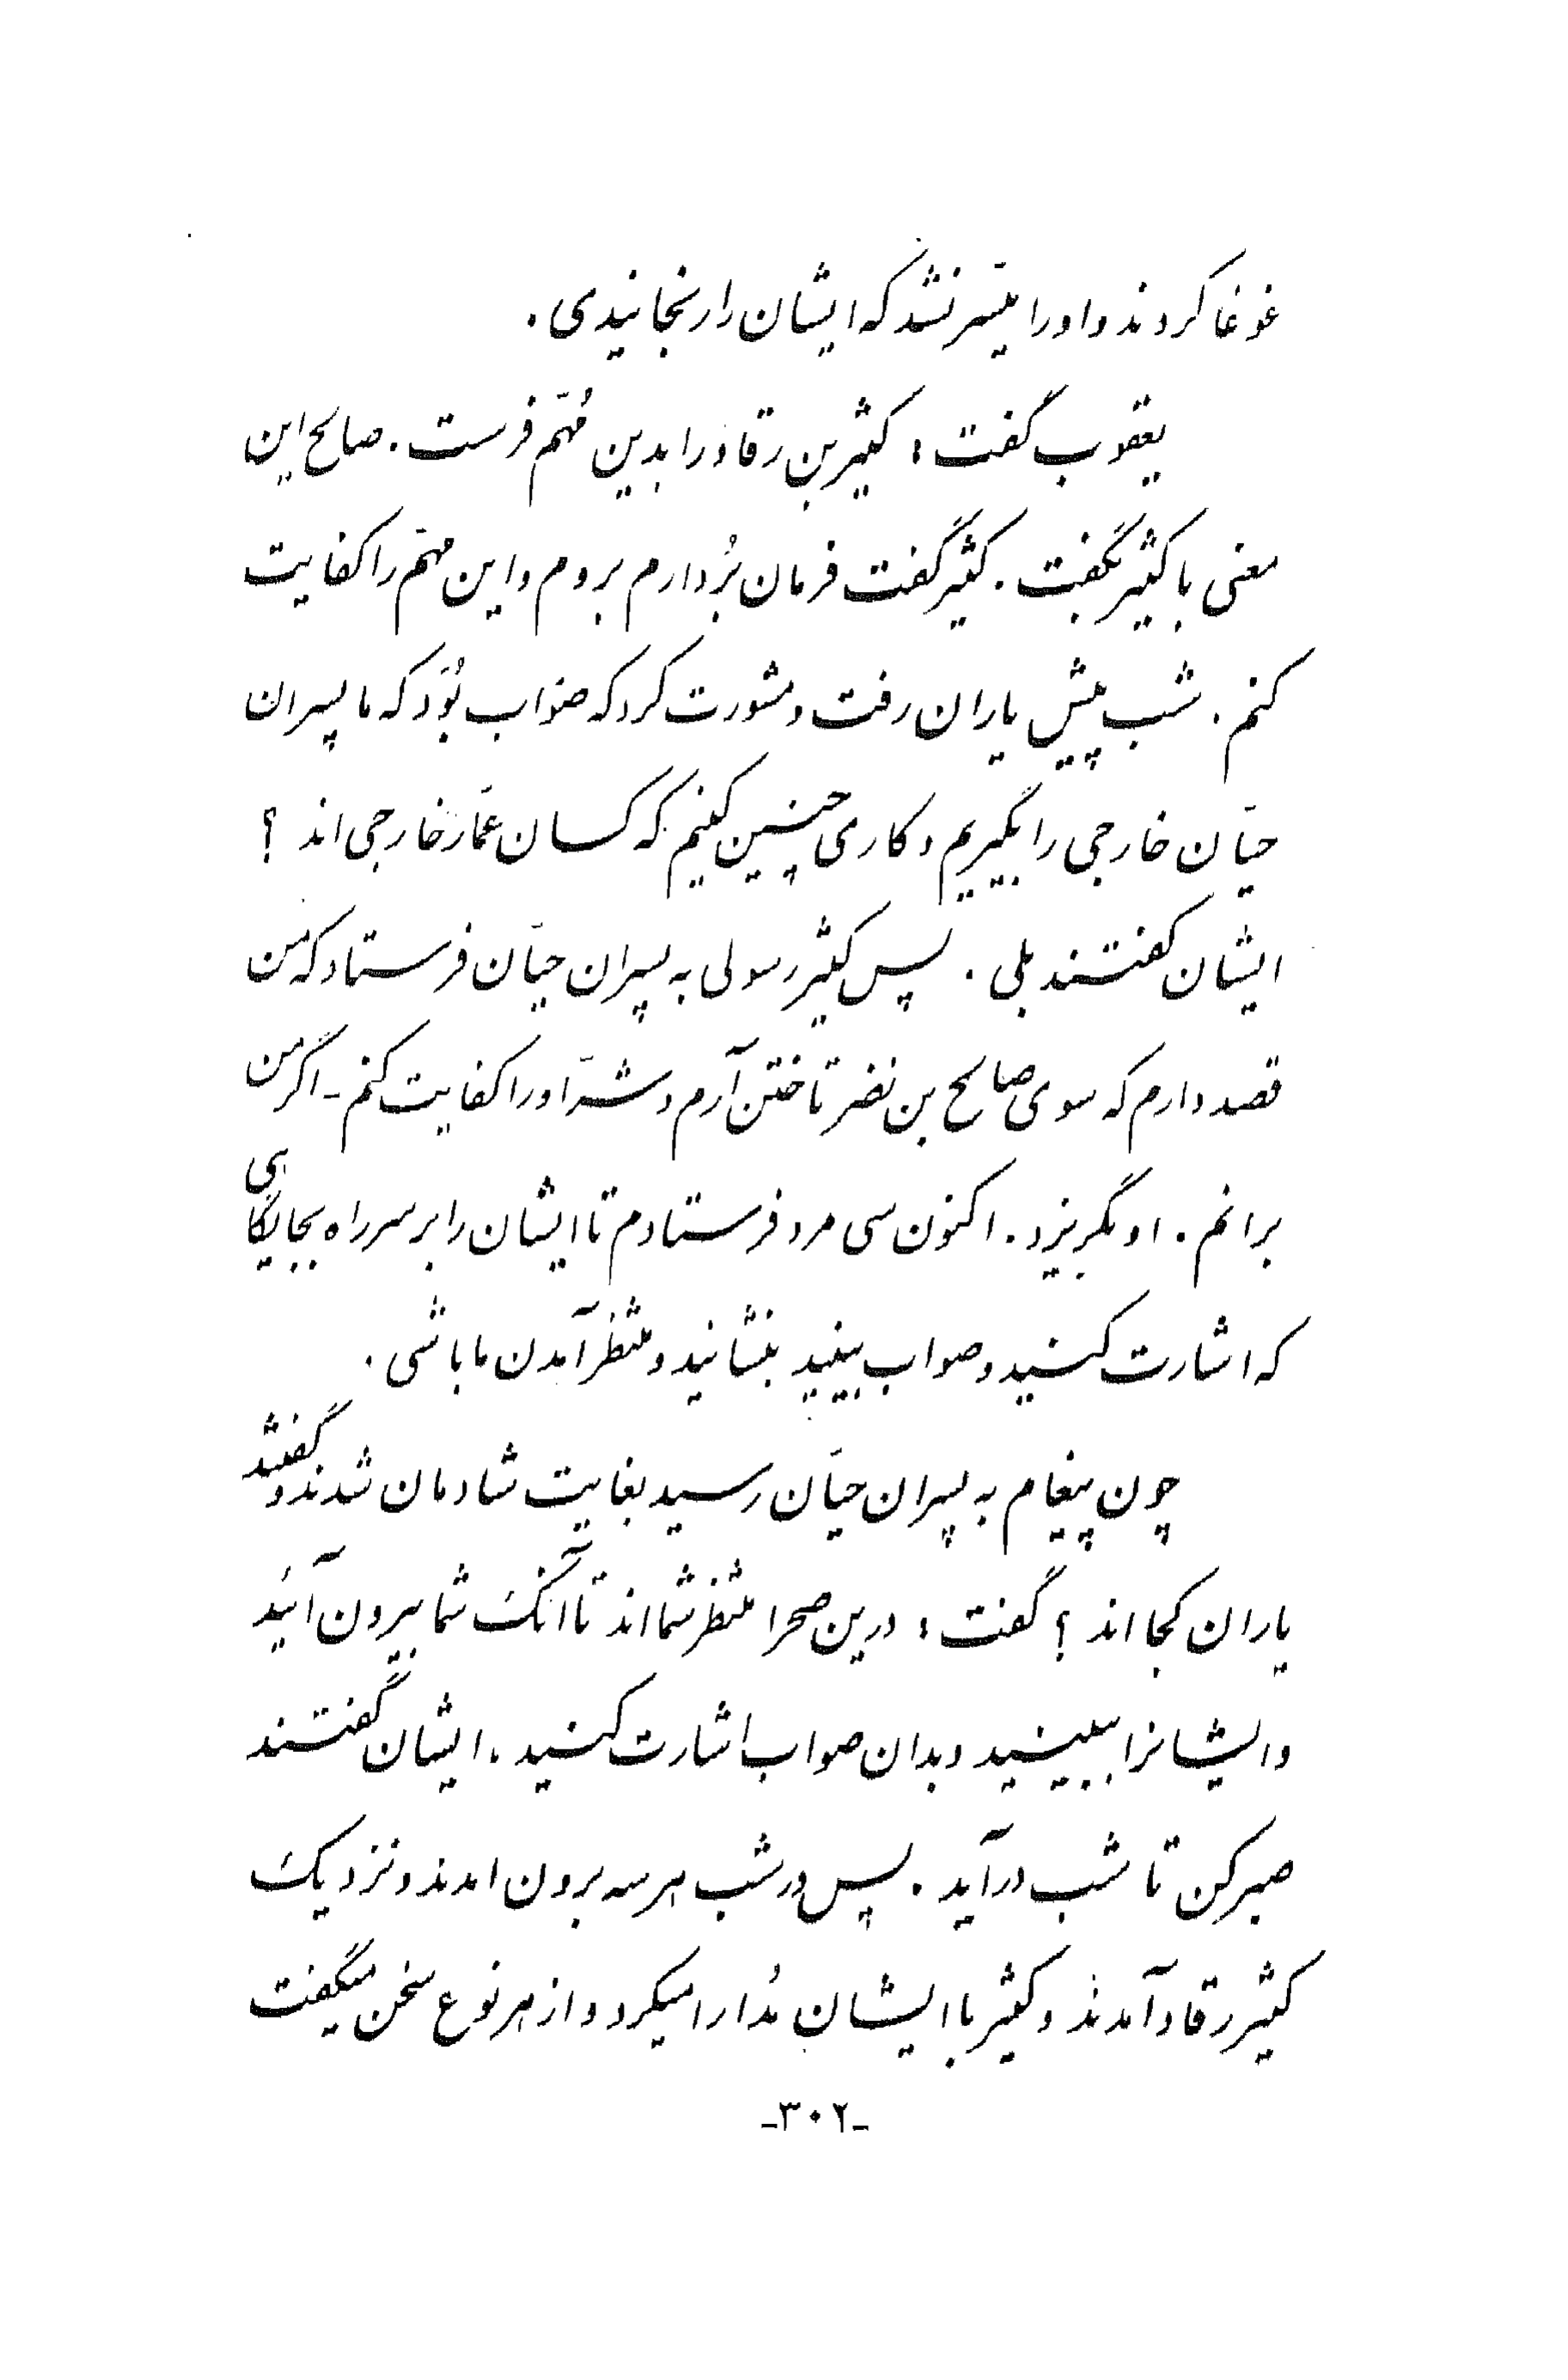 غوغا کردند و او را میسّر نشد که ایشان را رنجانیدی.
یعقوب گفت: کثیر بن رقاد را بدین مُهّم فرست. صالح این
معنی با کثیر بگفت. کثیر گفت فرمان بُردارم بروم و این مهّم را کفایت
کنم. شب پیش یاران رفت و مشورت کرد که صواب بُوَد که ما پسران
حیّان خارجی را بگیریم و کاری چنین کنیم که کسان عمّار خارجی اند؟
ایشان گفتند بلی. پس کثیر رسولی به پسران حیّان فرستاد که من
قصد دارم که سوی صالح بن نضر تاختن آرم و شّر او را کفایت کنم - اگر من
برانم. او بگریزد. اکنون سی مرد فرستادم تا ایشان را بر سر راه بجایگاهی
که اشارت کنید و صواب بینید بنشانید و منتظر آمدن ما باشی.
چون پیغام به پسران حیّان رسید بغایت شادمان شدند و گفتند
یاران کجا اند؟ گفت: درین صحرا منتظر شما اند تا آنک شما بیرون آئید
و ایشانرا ببینید و بدان صواب اشارت کنید، ایشان گفتند
صبر کن تا شب درآید. پس در شب هر سه برون امدند و نزدیک
کثیر رقاد آمدند و کثیر با ایشان مُدارا میکرد و از هر نوع سخن میگفت
-۳۰۲-